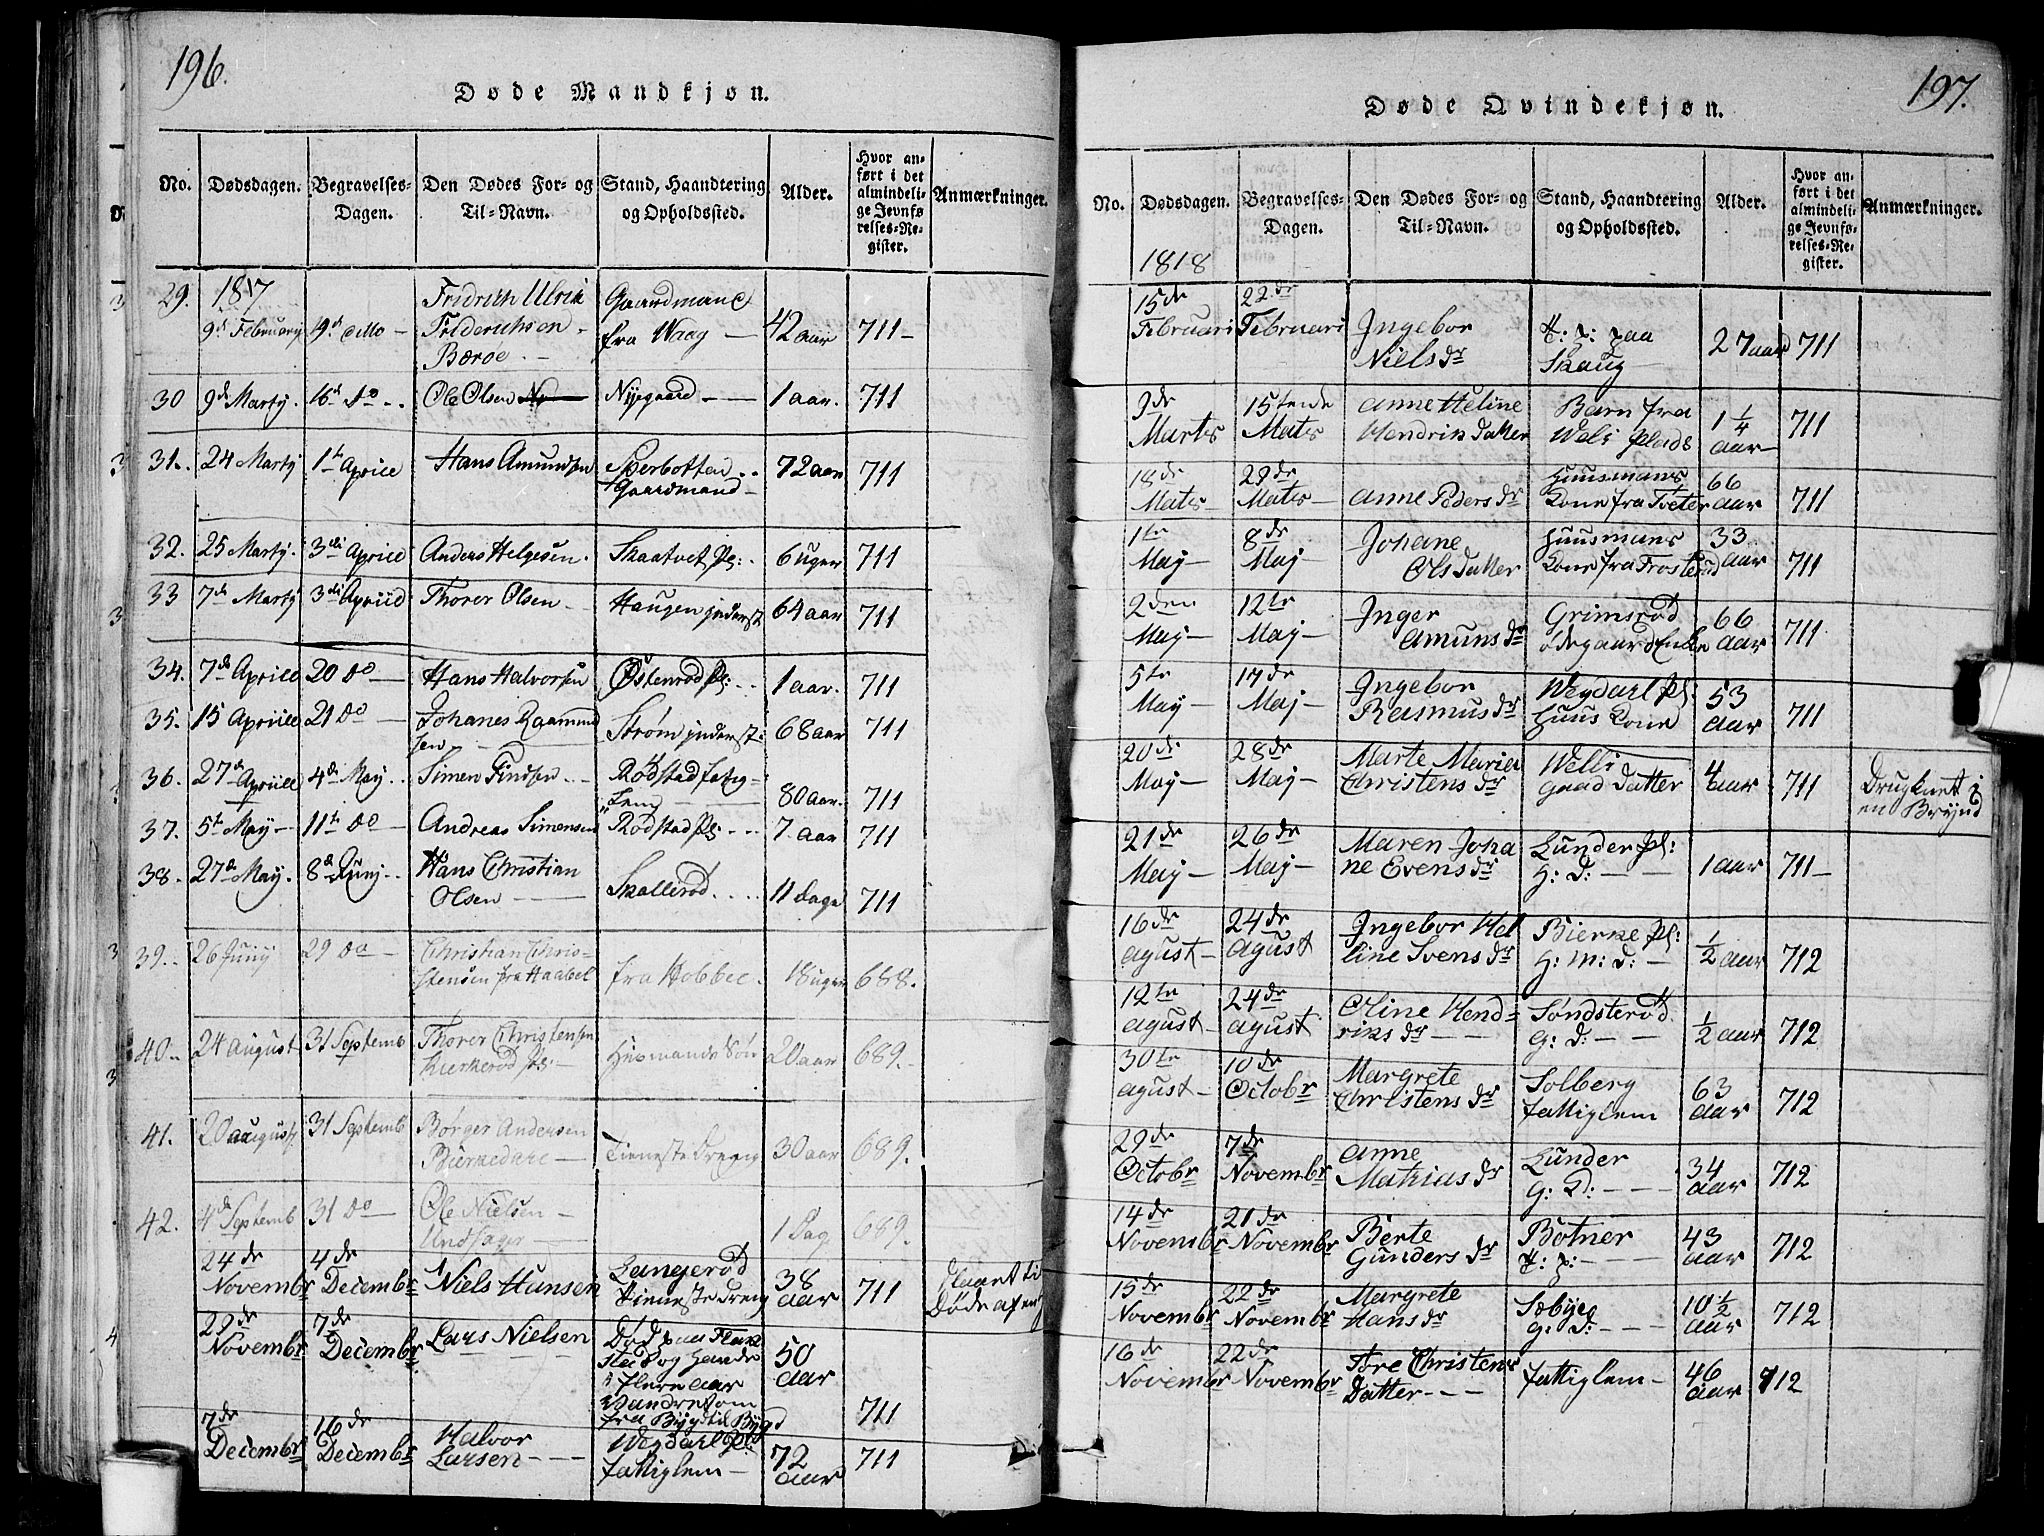 196.
Døde Mandkjøn.
No. Dødsdagen. Begravelses-Dagen. Den Dødes For- og Til-Navn. Stand, Haandtering og Opholdssted. Alder. Hvor anført i det almindelige Jevnførelses-Register. Anmærkninger.
29. 1817
9d February 19d ditto — Fridrich Ulrik Friderichsen Bærøe — Gaardmand fra Waag — 42 aar 711 —
30 9d Marty. 16d do — Ole Olsen Nygaard — 1 aar. 711
31. 24 Marty 1t Aprill Hans Amundsen Gaardmand — 72 aar 711
32. 25 Marty. 3die Aprill Anders Helgesen. Skaatvet Pl: 6 uger 711
33 7de Marty 3die Apriil Thorer Olsen — Haugen inderst 64 aar 711
34. 7de Aprill 20 do — Hans Halvorsen Østenrød Pl: 1 aar. 711
35. 15 Apriill 21 do — Johanes Raamundsen Strøm inderst: 68 aar 711
36. 27d Apriill 4d May. Simen Findsen Rødstad 80 aar. 711
37. 5t May — 11t do — Andreas Simensen Rødstad Pl: 7. aar 711
38. 27d May. 8d Juny. Hans Christian Olsen — Skallerød 11 dage 711
39. 26 Juny 29 do — Christian Christensen fra Haabøl fra Hobbel. 18 uger 688.
40. 24 August 31 Septemb Thorer Christensen Kierkerød Pl: — Husmands Søn 20 aar 689.
41. 20 august 31 Septemb Børger Andersen Tieneste Dreng 30 aar 689.
42. 4d Septemb 31 do Ole Nielsen — 1 Dag 689.
24de Novembr 4de Decembr Niels Hansen Langerød Tieneste Dreng 38 aar 711
29de Novembr 7de Decembr Lars Nielsen Død paa og flere aar Vandret om fra Bygd til Bygd 50 aar 711
7de Decembr 16de Decembr Halvor Larsen — Wegdarl Pl: fattiglem — 72 aar 711
197.
Døde Qvindekjøn.
No. Dødsdagen. Begravelses-Dagen. Den Dødes For- og Til-Navn. Stand, Haandtering og Opholdssted. Alder. Hvor anført i det almindelige Jevnførelses-Register. Anmærkninger.
1818
15de Februari 22de Februari Ingebor Niels dr paa Skaug 27 aar 711
9de Marts 15tende Mats Anne Heline Hendriks datter Barn fra Weli plads 1 1/4 aar — 711
18de Mats — 29de Mats — Anne Peders dr Huusmans Kone fra Tveter 66 aar 711
1te May — 8de May — Johane Ols datter Huusmans Kone fra Frosterud 33 aar 711
2den May — 12te May — Inger Amuns dr Grimsrød ødegaard Enke 66 aar 711
5te May — 17de May — Ingebor Rasmus dr Wegdarl Pl: Huus Kone 53 aar 711
20de May — 28de May — Marte Maria Christens dr Welli gaard datter 4 aar 711 Drugknet i en Brynd
21de May — 26de May — Maren Johane Evens dr Lunder Pl: H: D: — 1 aar 711 —
16de agust — 24de agust Ingebor Helline Svens dr Bierke Pl: H: M: D: — 1/2 aar 712
12te agust — 24de agust Oline Hendriks dr — Søndsterød. G: D: — 1/2 aar 712
30te agust — 10de Octobr Margrete Christens dr Solberg fattiglem 63 aar 712
29de Octobr 7de Novembr Anne Mathias dr Lunder G: D: — 34 aar 712
14de Novembr 21de Novembr Berte Gunders dr Botner 43 aar 712
15de Novembr 22de Novembr Margrete Hans dr Sæbye g: d: — 10 1/2 aar 712
16de Novembr 22de Novembr Tore Christens Datter — fattiglem — 46 aar 712